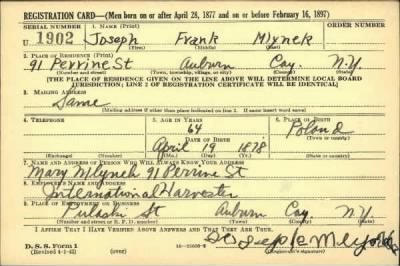 REGISTRATION CARD—(Men born on or after April 28, 1877 and on or before February 16, 1897)
SERIAL NUMBER 1. NAME (Print) ORDER NUMBER
U 1902 Joseph Frank Mlynek
(First) (Middle) (Last)
2. PLACE OF RESIDENCE (Print)
91 Perrine St Auburn Cay. N.Y.
(Number and street) (Town, township, village, or city) (County) (State)
[THE PLACE OF RESIDENCE GIVEN ON THE LINE ABOVE WILL DETERMINE LOCAL BOARD
JURISDICTION; LINE 2 OF REGISTRATION CERTIFICATE WILL BE IDENTICAL]
3. MAILING ADDRESS
Same
[Mailing address if other than place indicated on line 2. If same insert word same]
4. TELEPHONE 5. AGE IN YEARS 6. PLACE OF BIRTH
64 Poland
DATE OF BIRTH (Town or county)
April 19 1878
(Exchange) (Number) (Mo.) (Day) (Yr.) (State or country)
7. NAME AND ADDRESS OF PERSON WHO WILL ALWAYS KNOW YOUR ADDRESS
Mary Mlynek 91 Perrine St
8. EMPLOYER'S NAME AND ADDRESS
International Harvester
9. PLACE OF EMPLOYMENT OR BUSINESS
Pulaski St Auburn Cay N.Y.
(Number and street or R. F. D. number) (Town) (County) (State)
I AFFIRM THAT I HAVE VERIFIED ABOVE ANSWERS AND THAT THEY ARE TRUE.
D. S. S. Form 1
(Revised 4-1-42) (over)